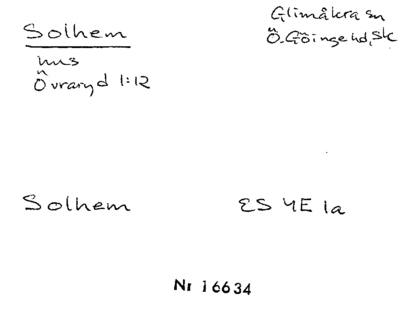 Solhem
Glimåkra sn
Ö. Göinge hd, Sk
hus
Övraryd 1:12
Solhem
ES 4E 1a
Nr 16634